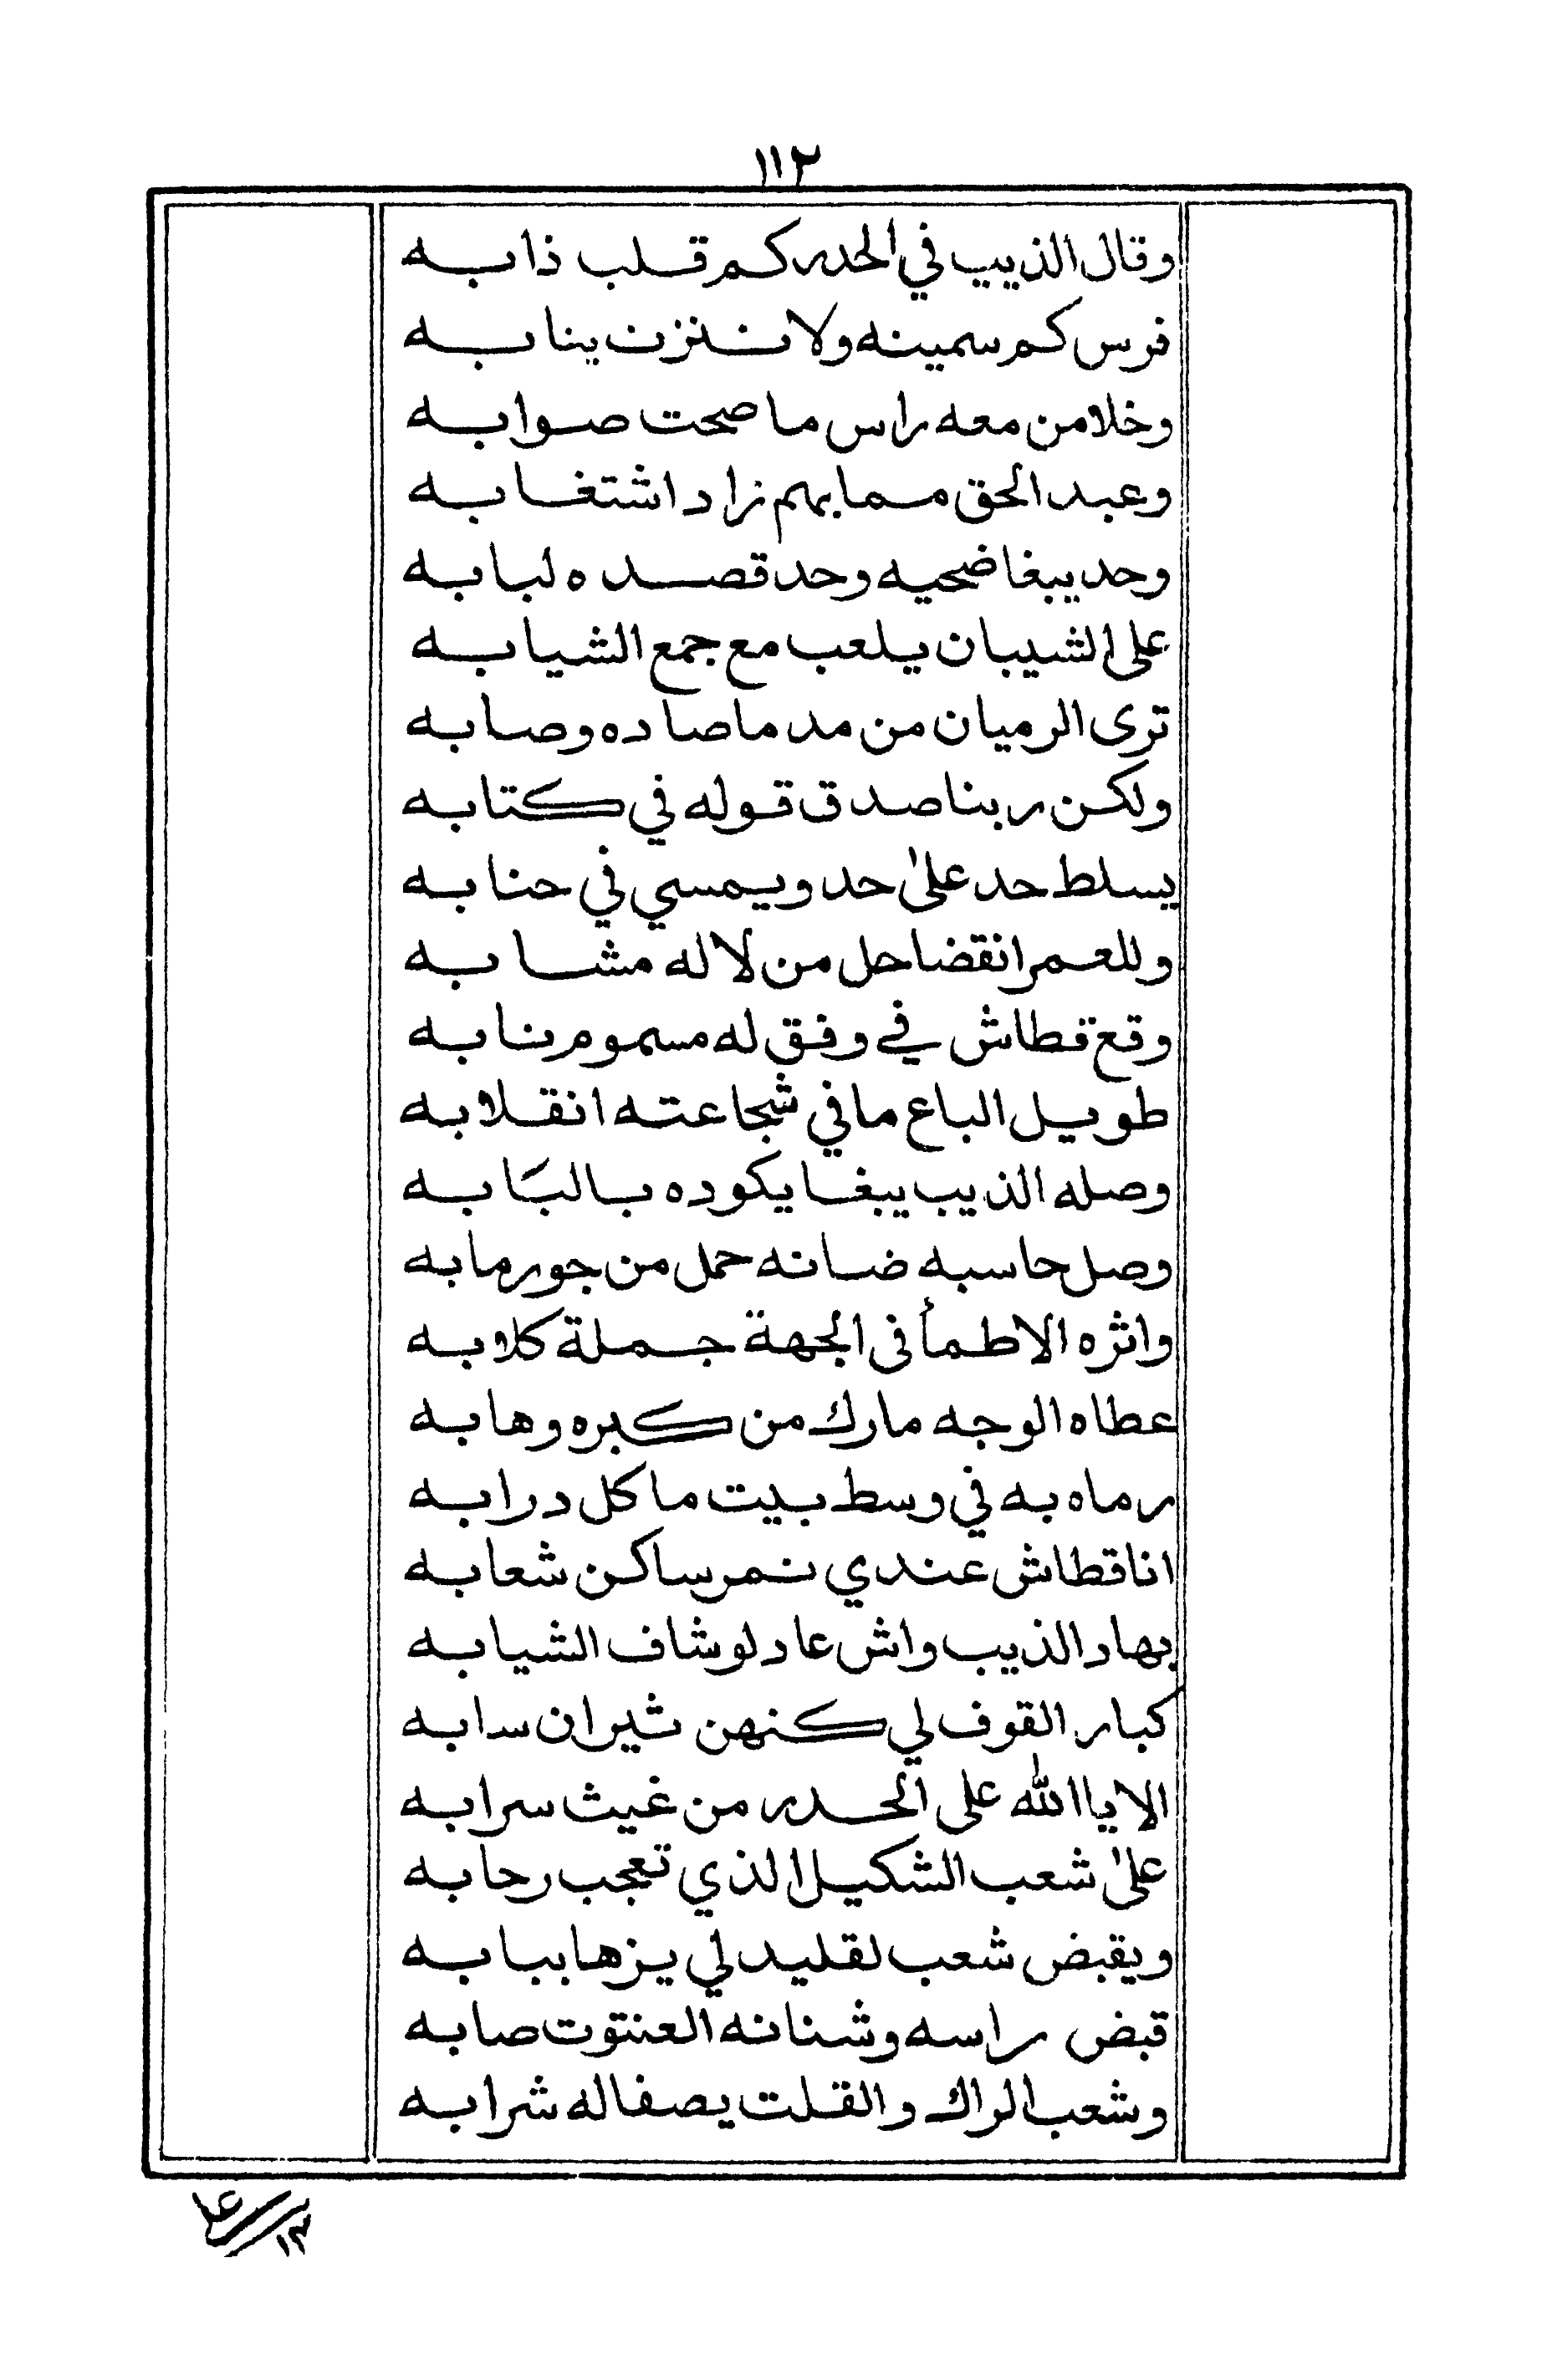 ١١٢
وقال الذييب في الحدر كم قلب ذابه
فرس كم سمينه ولا تنزت ينابه
وخلا من معه راس ما صحت صوابه
وعبد الحق مما بهم زاد اشتغابه
وحد يبغا ضحيه وحد قصده لبابه
على الشيبان يلعب مع جمع الشيابه
ترى الرميان من مد ما صاده وصابه
ولكن ربنا صدق قوله في كتابه
يسلط حد على حد ويمسي في حنابه
وللعمر انقضا حل من لا له مشابه
وقع قطاش في وفق له مسموم نابه
طويل الباع ما في شجاعته انقلابه
وصله الذيب يبغا يكوده بالبَابه
وصل حاسبه ضانه حمل من جور مابه
واثره الاطمأ في الجهة جملة كلابه
عطاه الوجه مارك من كبره وهابه
رماه به في وسط بيت ما كل درابه
انا قطاش عندي نمر ساكن شعابه
بهاد الذيب واش عاد لو شاف الشيابه
كبار القوف لي كنهن ثيران سابه
الا يا الله على الحدر من غيث سرابه
على شعب الشكيل الذي تعجب رحابه
ويقبض شعب لقليد لي يزها ببابه
قبض راسه وشنانه العنتوت صابه
وشعب الراك والقلت يصفا له شرابه